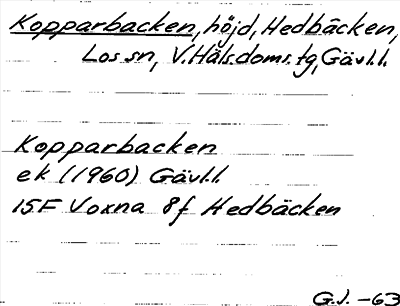 Kopparbacken, höjd, Hedbäcken,
Los sn, V.Häls.doms.tg, Gävl.l.
Kopparbacken
ek (1960) Gävl.l.
15F Voxna 8f Hedbäcken
G.J. -63